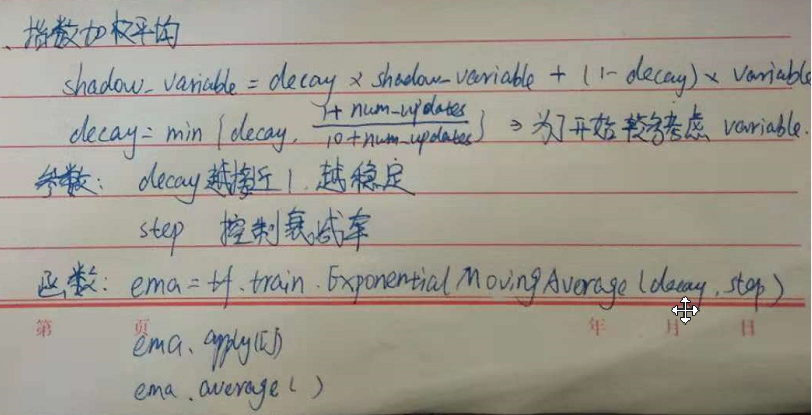 、指数加权平均
shadow_variable = decay × shadow_variable + (1- decay) × variable
decay = min { decay, 1+ num_updates / 10 + num_updates } ⇒ 为了开始较多考虑 variable.
参数: decay越接近1, 越稳定
step 控制衰减率
函数: ema = tf.train.ExponentialMovingAverage(decay, step)
第 页 年 月 日
ema.apply([])
ema.average( )